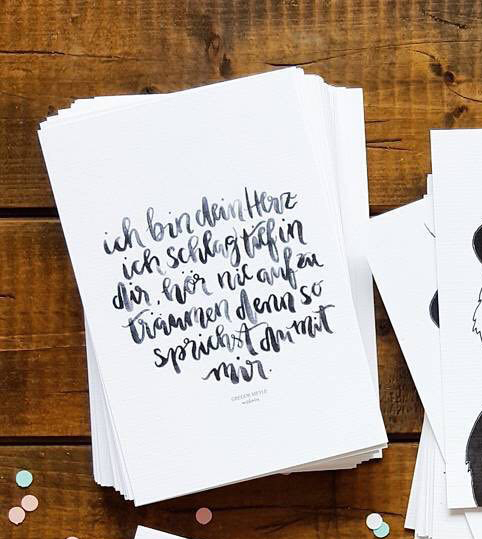 ich bin dein Herz
ich schlag tief in
dir, hör nie auf zu
träumen denn so
sprichst du mit
mir.
GREGOR MEYLE